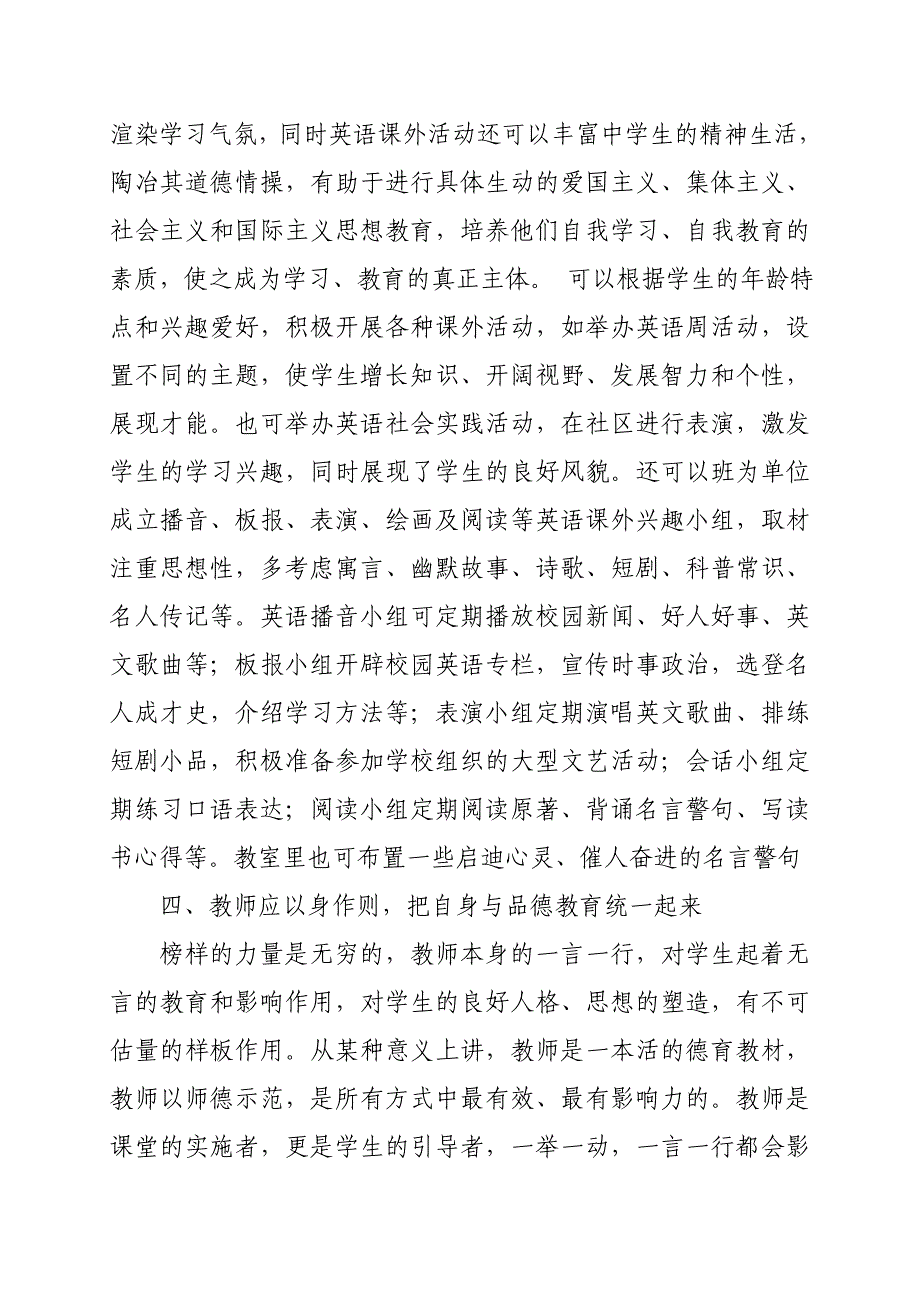 渲染学习气氛，同时英语课外活动还可以丰富中学生的精神生活，
陶冶其道德情操，有助于进行具体生动的爱国主义、集体主义、
社会主义和国际主义思想教育，培养他们自我学习、自我教育的
素质，使之成为学习、教育的真正主体。 可以根据学生的年龄特
点和兴趣爱好，积极开展各种课外活动，如举办英语周活动，设
置不同的主题，使学生增长知识、开阔视野、发展智力和个性，
展现才能。也可举办英语社会实践活动，在社区进行表演，激发
学生的学习兴趣，同时展现了学生的良好风貌。还可以班为单位
成立播音、板报、表演、绘画及阅读等英语课外兴趣小组，取材
注重思想性，多考虑寓言、幽默故事、诗歌、短剧、科普常识、
名人传记等。英语播音小组可定期播放校园新闻、好人好事、英
文歌曲等；板报小组开辟校园英语专栏，宣传时事政治，选登名
人成才史，介绍学习方法等；表演小组定期演唱英文歌曲、排练
短剧小品，积极准备参加学校组织的大型文艺活动；会话小组定
期练习口语表达；阅读小组定期阅读原著、背诵名言警句、写读
书心得等。教室里也可布置一些启迪心灵、催人奋进的名言警句
四、教师应以身作则，把自身与品德教育统一起来
榜样的力量是无穷的，教师本身的一言一行，对学生起着无
言的教育和影响作用，对学生的良好人格、思想的塑造，有不可
估量的样板作用。从某种意义上讲，教师是一本活的德育教材，
教师以师德示范，是所有方式中最有效、最有影响力的。教师是
课堂的实施者，更是学生的引导者，一举一动，一言一行都会影